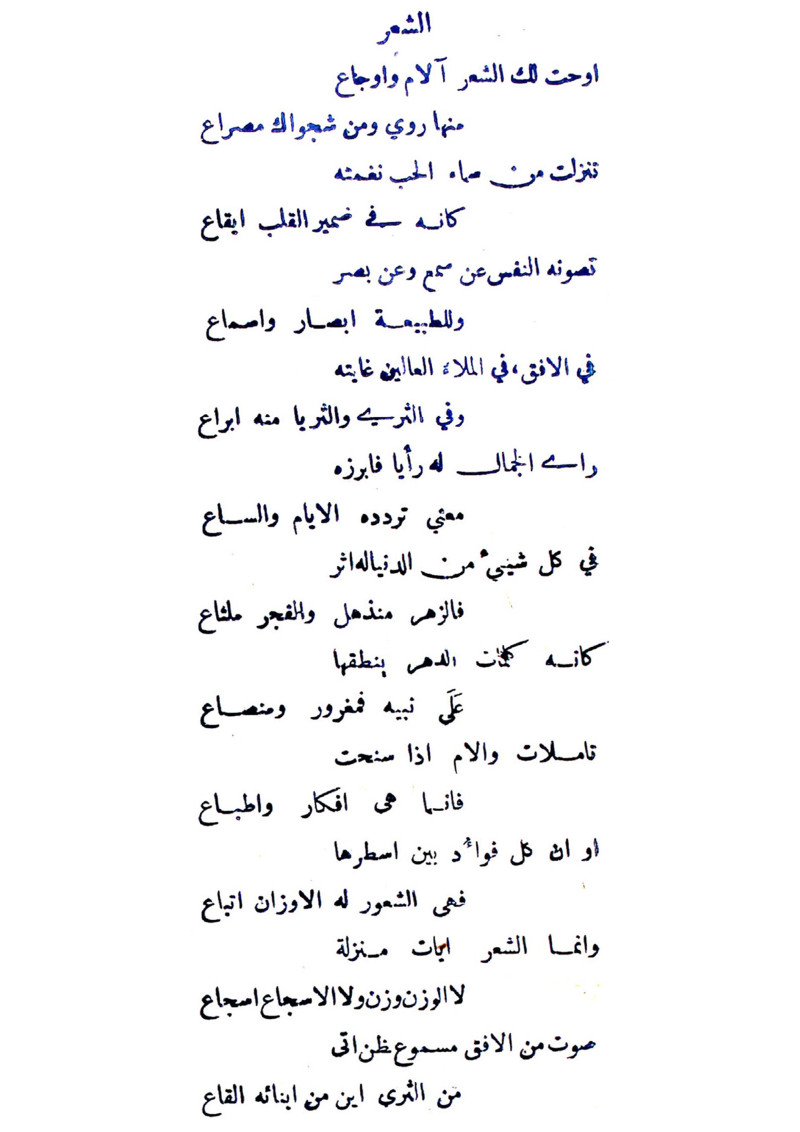 الشعر
اوحت لك الشعر آلام واوجاع
منها روي ومن شجواك مصراع
تنزلت من سماء الحب نغمته
كانه في ضمير القلب ايقاع
تصونه النفس عن سمع وعن بصر
وللطبيعة ابصار واسماع
في الافق، في الملاء العالين غايته
وفي الثرى والثريا منه ابراع
راى الجمال له رأيا فابرزه
معني تردده الايام والساع
في كل شيئ من الدنياله اثر
فالزهر منذهل والفجر ملتاع
كانه كلمات الدهر ينطقها
عَلَى نبيه فمغرور ومنصاع
تاملات والام اذا سنحت
فانما هى افكار واطباع
او ان كل فواٴد بين اسطرها
فهى الشعور له الاوزان اتباع
وانما الشعر ايات منزلة
لا الوزن وزن ولا الاسجاع اسجاع
صوت من الافق مسموع ظن اتى
من الثري اين من ابنائه القاع